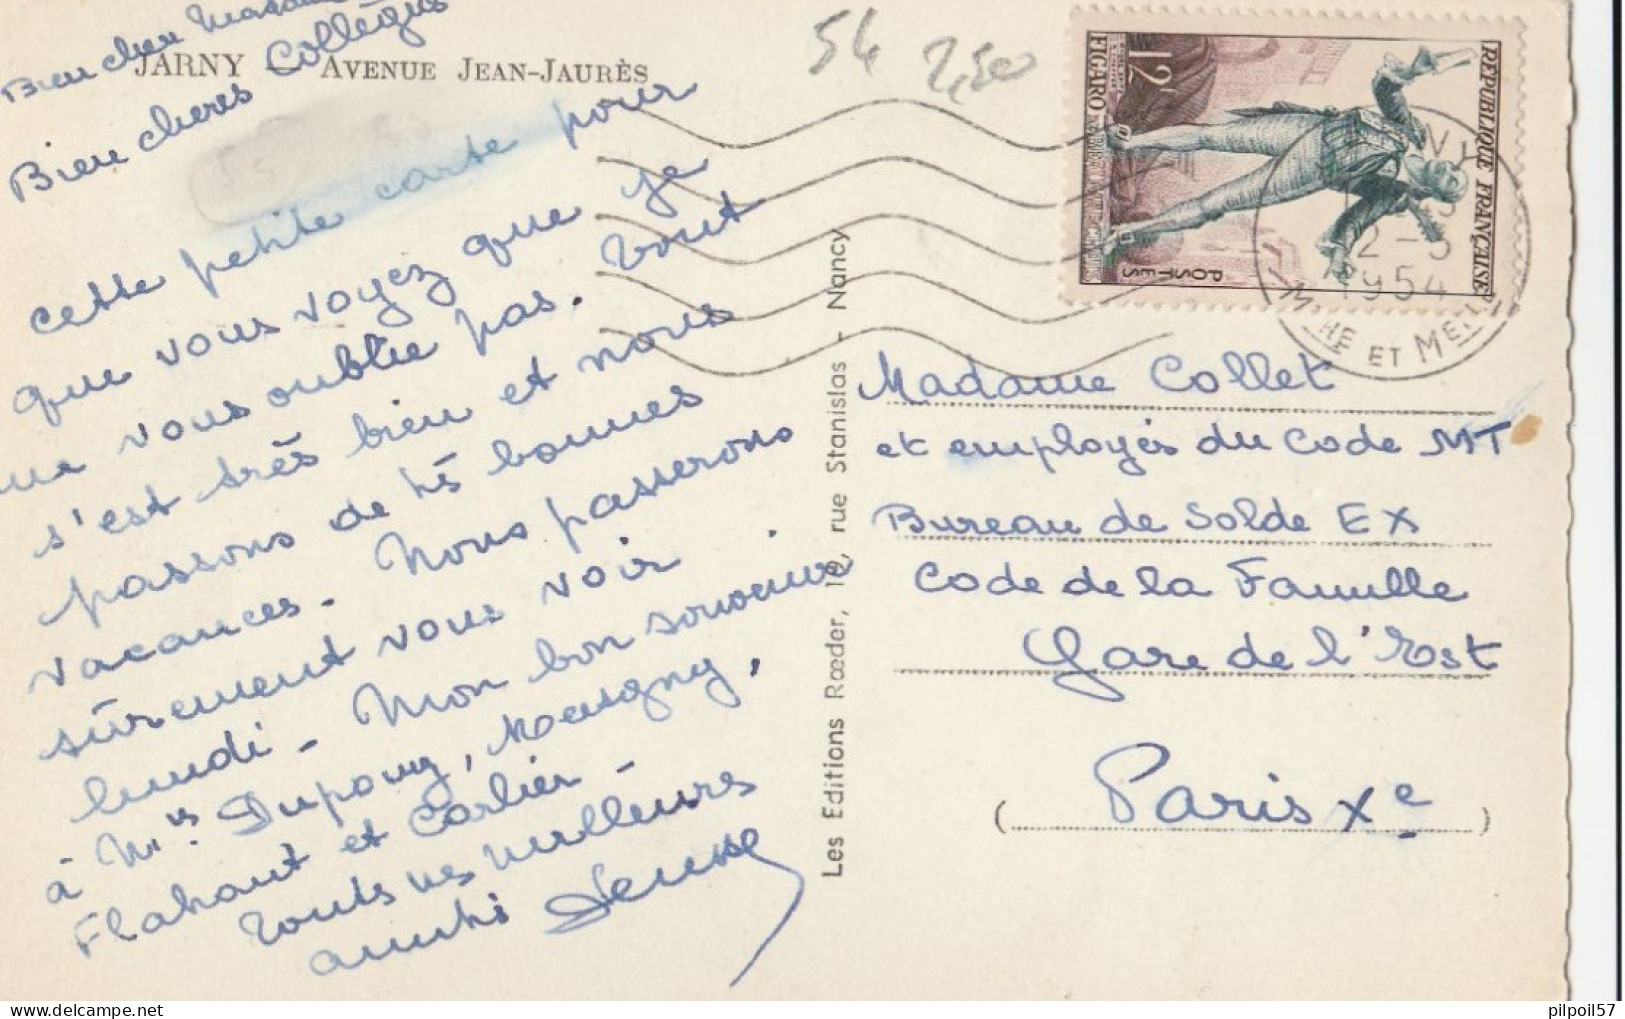 Bien chère Madame
Bien chères Collègues
JARNY — AVENUE JEAN-JAURÈS
cette petite carte pour
que vous voyez que je
ne vous oublie pas. Tout
s'est très bien et nous
passons de très bonnes
vacances. Nous passerons
sûrement vous voir
lundi - Mon bon souvenir
à Mrs. Dupouy,
Flahaut et Carlier -
Toutes mes meilleures
amitiés Denise
54 2,50
Les Editions Rœder, 19, rue Stanislas - Nancy
REPUBLIQUE FRANÇAISE
12F
FIGARO
POSTES
12-5
1954
MTHE ET MELLE
Madame Collet
et employés du Code MT
Bureau de Solde EX
Code de la Famille
Gare de l'Est
( Paris Xe )
pilpoil57